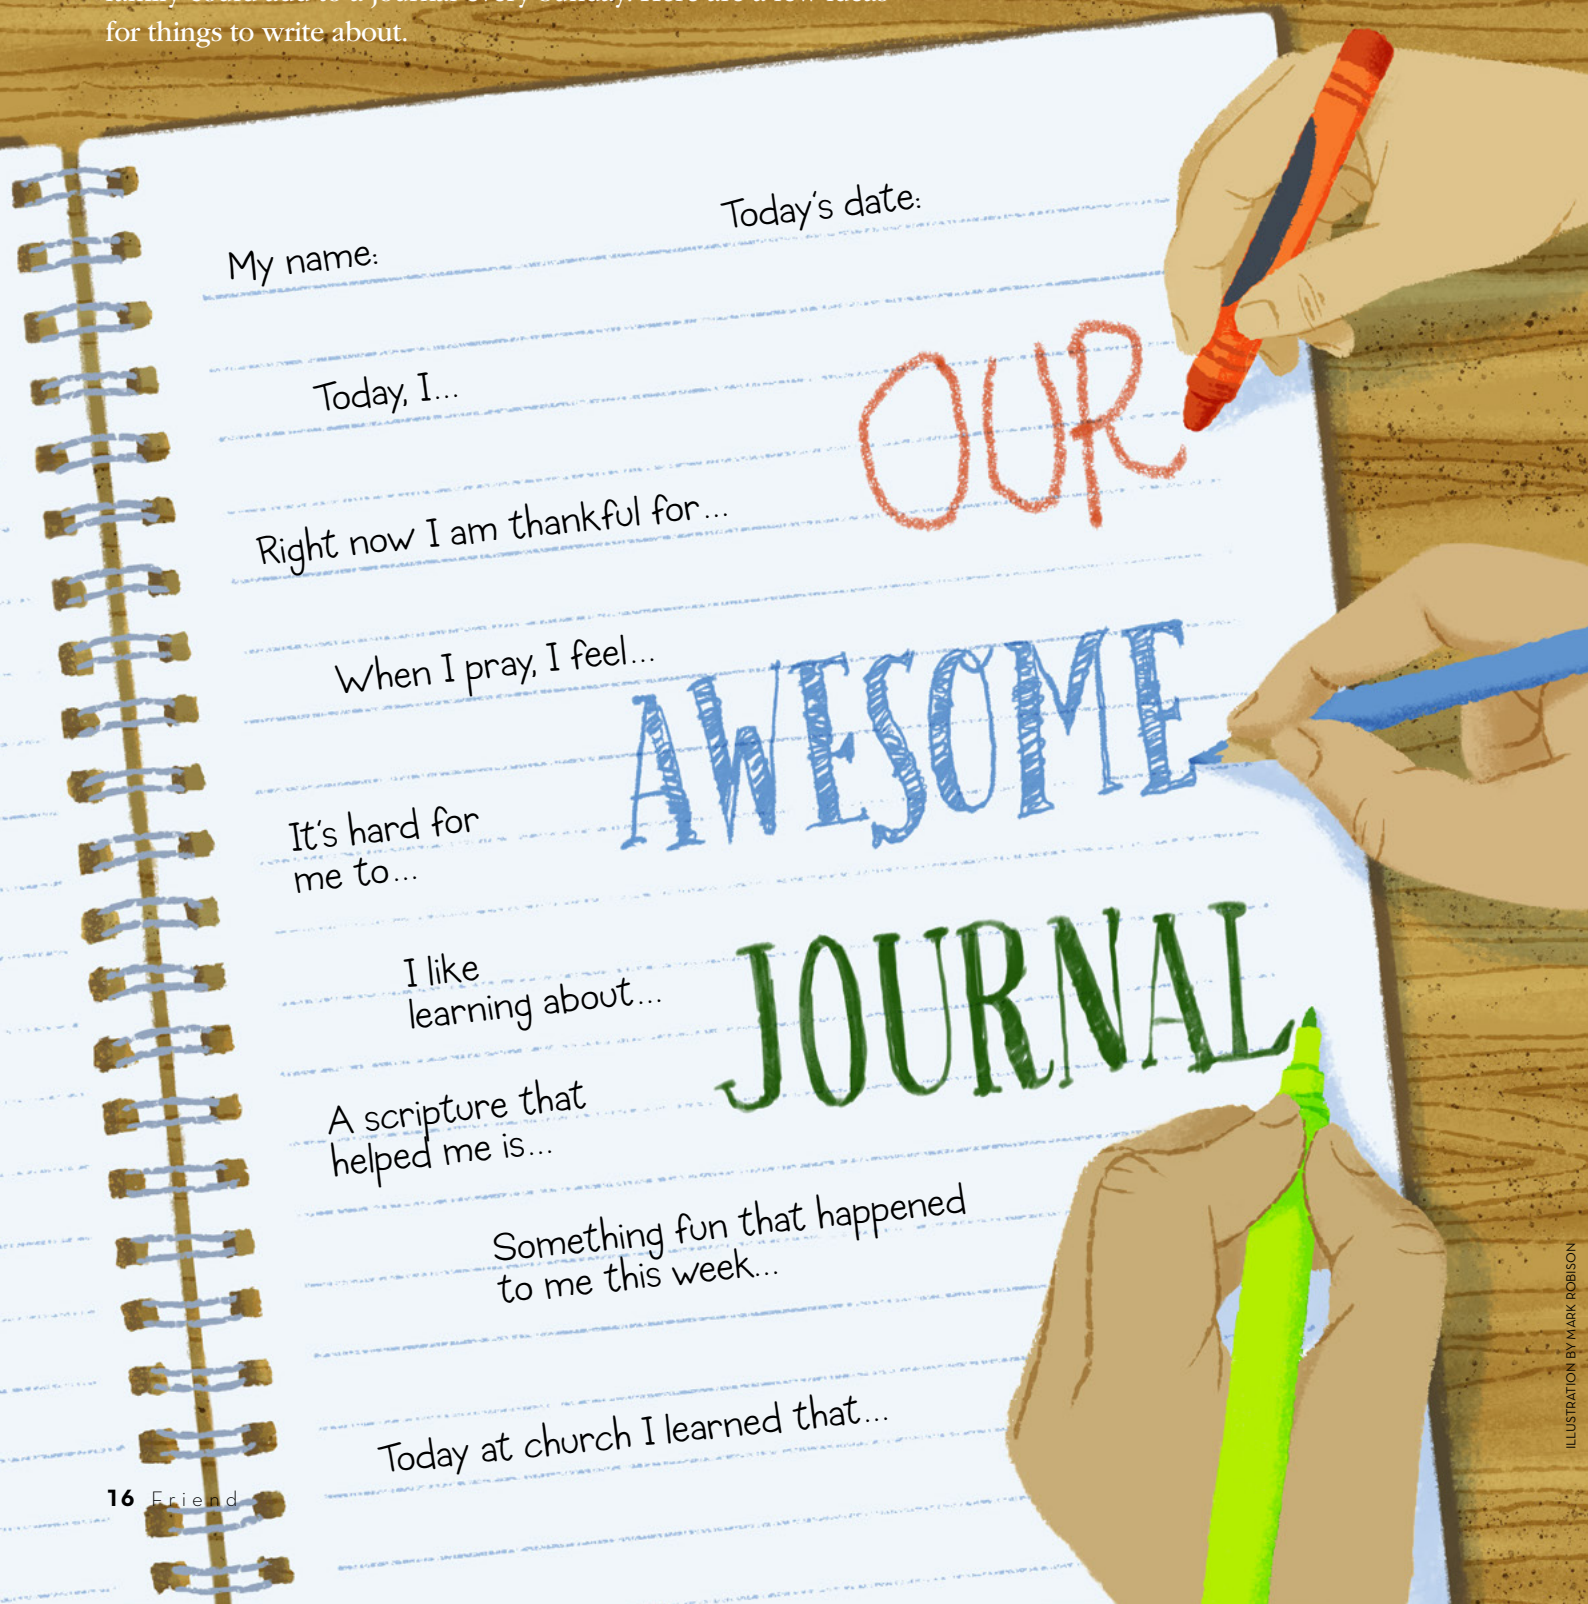 family could add to a journal every Sunday. Here are a few ideas
for things to write about.
My name:
Today's date:
Today, I...
OUR
Right now I am thankful for...
When I pray, I feel...
AWESOME
It's hard for
me to...
I like
learning about...
JOURNAL
A scripture that
helped me is...
Something fun that happened
to me this week...
Today at church I learned that...
16 Friend
ILLUSTRATION BY MARK ROBISON